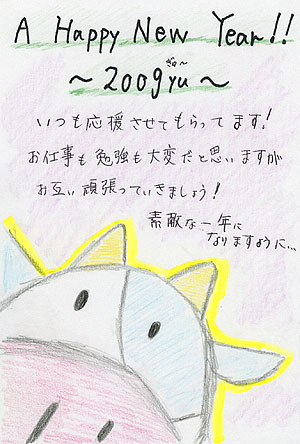 A Happy New Year!!
ぎゅ〜
〜2009yu〜
いつも応援させてもらってます!
お仕事も勉強も大変だと思いますが
お互い頑張っていきましょう!
素敵な一年に
なりますように…